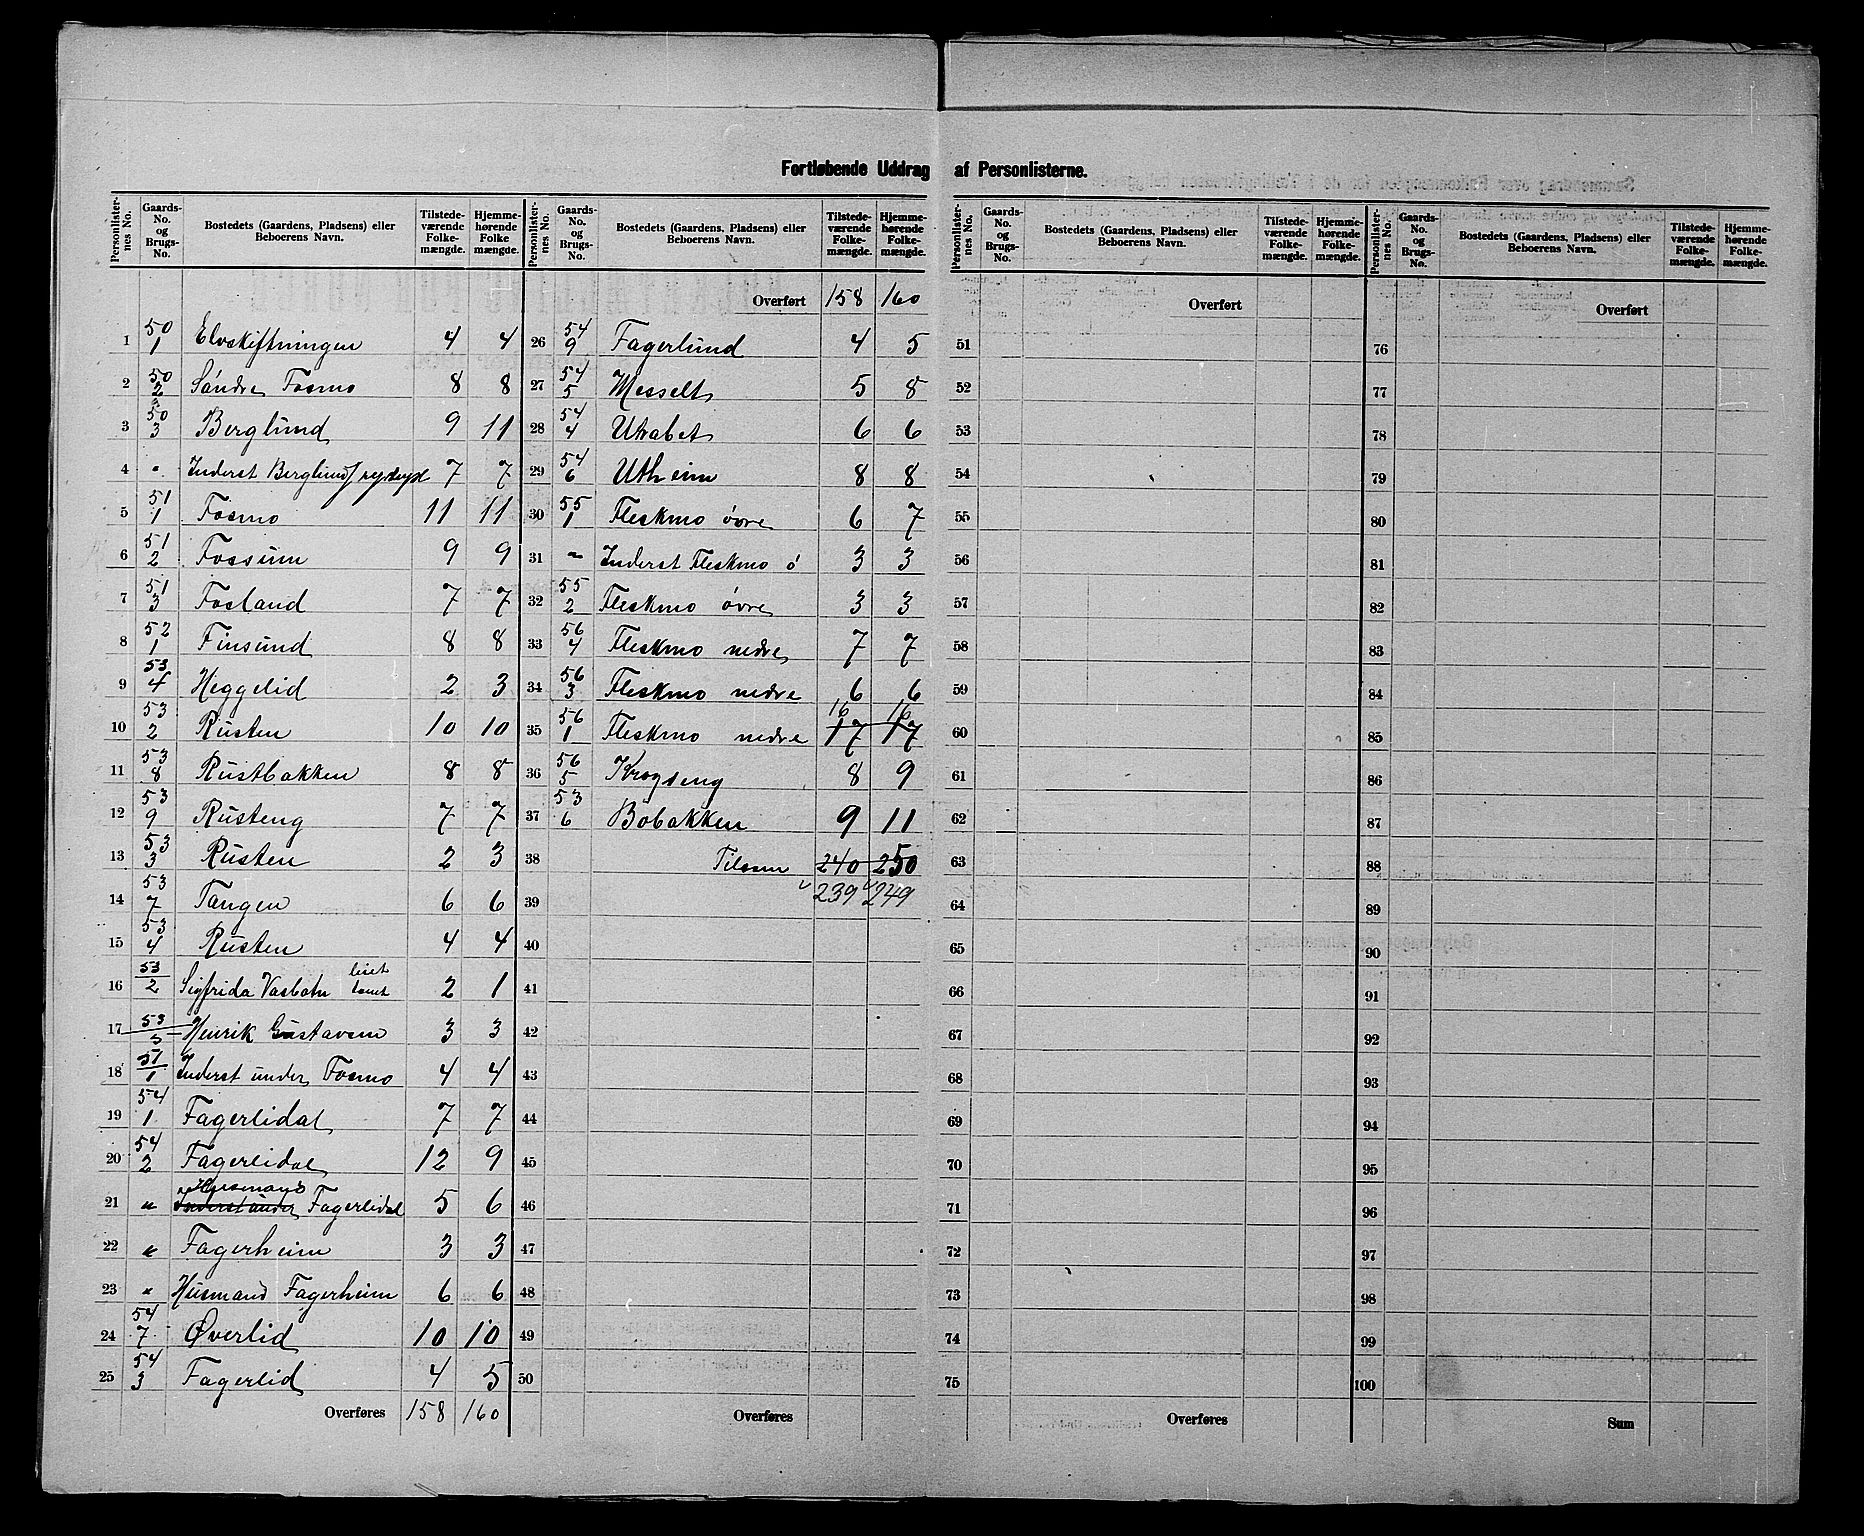 Fortløbende Uddrag af Personlisterne.
Personlister-nes No. | Gaards-No. og Brugs-No. | Bostedets (Gaardens, Pladsens) eller Beboerens Navn. | Tilstede-værende Folke-mængde. | Hjemme-hørende Folke mængde.
1 50/1 Elvskiftningen 4 4
2 50/2 Søndre Fosmo 8 8
3 50/3 Berglund 9 11
4 " Inderst Berglund 7 7
5 51/1 Fosmo 11 11
6 51/2 Fossum 9 9
7 51/3 Fosland 7 7
8 52/1 Finsund 8 8
9 53/4 Heggelid 2 3
10 53/2 Rusten 10 10
11 53/8 Rustbakken 8 8
12 53/9 Rusteng 7 7
13 53/3 Rusten 2 3
14 53/7 Tangen 6 6
15 53/4 Rusten 4 4
16 53/2 Sigfrida Vasbotn 2 1
17 53/5 Henrik Gustavsen 3 3
18 51/1 Inderst under Fosmo 4 4
19 54/1 Fagerlidal 7 7
20 54/2 Fagerlidal 12 9
21 " Husmand Inderst under Fagerlidal 5 6
22 " Fagerheim 3 3
23 " Husmand Fagerheim 6 6
24 54/7 Øverlid 10 10
25 54/3 Fagerlid 4 5
Overføres 158 160
Personlister-nes No. | Gaards-No. og Brugs-No. | Bostedets (Gaardens, Pladsens) eller Beboerens Navn. | Tilstede-værende Folke-mængde. | Hjemme-hørende Folke-mængde.
Overført 158 160
26 54/9 Fagerlund 4 5
27 54/5 Messelt 5 8
28 54/4 Utrabet 6 6
29 54/6 Utheim 8 8
30 55/1 Fleskmo øvre 6 7
31 " Inderst Fleskmo ø 3 3
32 55/2 Fleskmo øvre 3 3
33 56/4 Fleskmo nedre 7 7
34 56/3 Fleskmo nedre 6 6
35 56/1 Fleskmo nedre 16 17 16 17
36 56/5 Krogseng 8 9
37 53/6 Bobakken 9 11
38 Tilsam 240 250
39 239 249
40
41
42
43
44
45
46
47
48
49
50
Overføres
Personlister-nes No. | Gaards-No. og Brugs-No. | Bostedets (Gaardens, Pladsens) eller Beboerens Navn. | Tilstede-værende Folke-mængde. | Hjemme-hørende Folke-mængde.
Overført
51
52
53
54
55
56
57
58
59
60
61
62
63
64
65
66
67
68
69
70
71
72
73
74
75
Overføres
Personlister-nes No. | Gaards-No. og Brugs-No. | Bostedets (Gaardens, Pladsens) eller Beboerens Navn. | Tilstede-værende Folke-mængde. | Hjemme-hørende Folke-mængde.
Overført
76
77
78
79
80
81
82
83
84
85
86
87
88
89
90
91
92
93
94
95
96
97
98
99
100
Sum